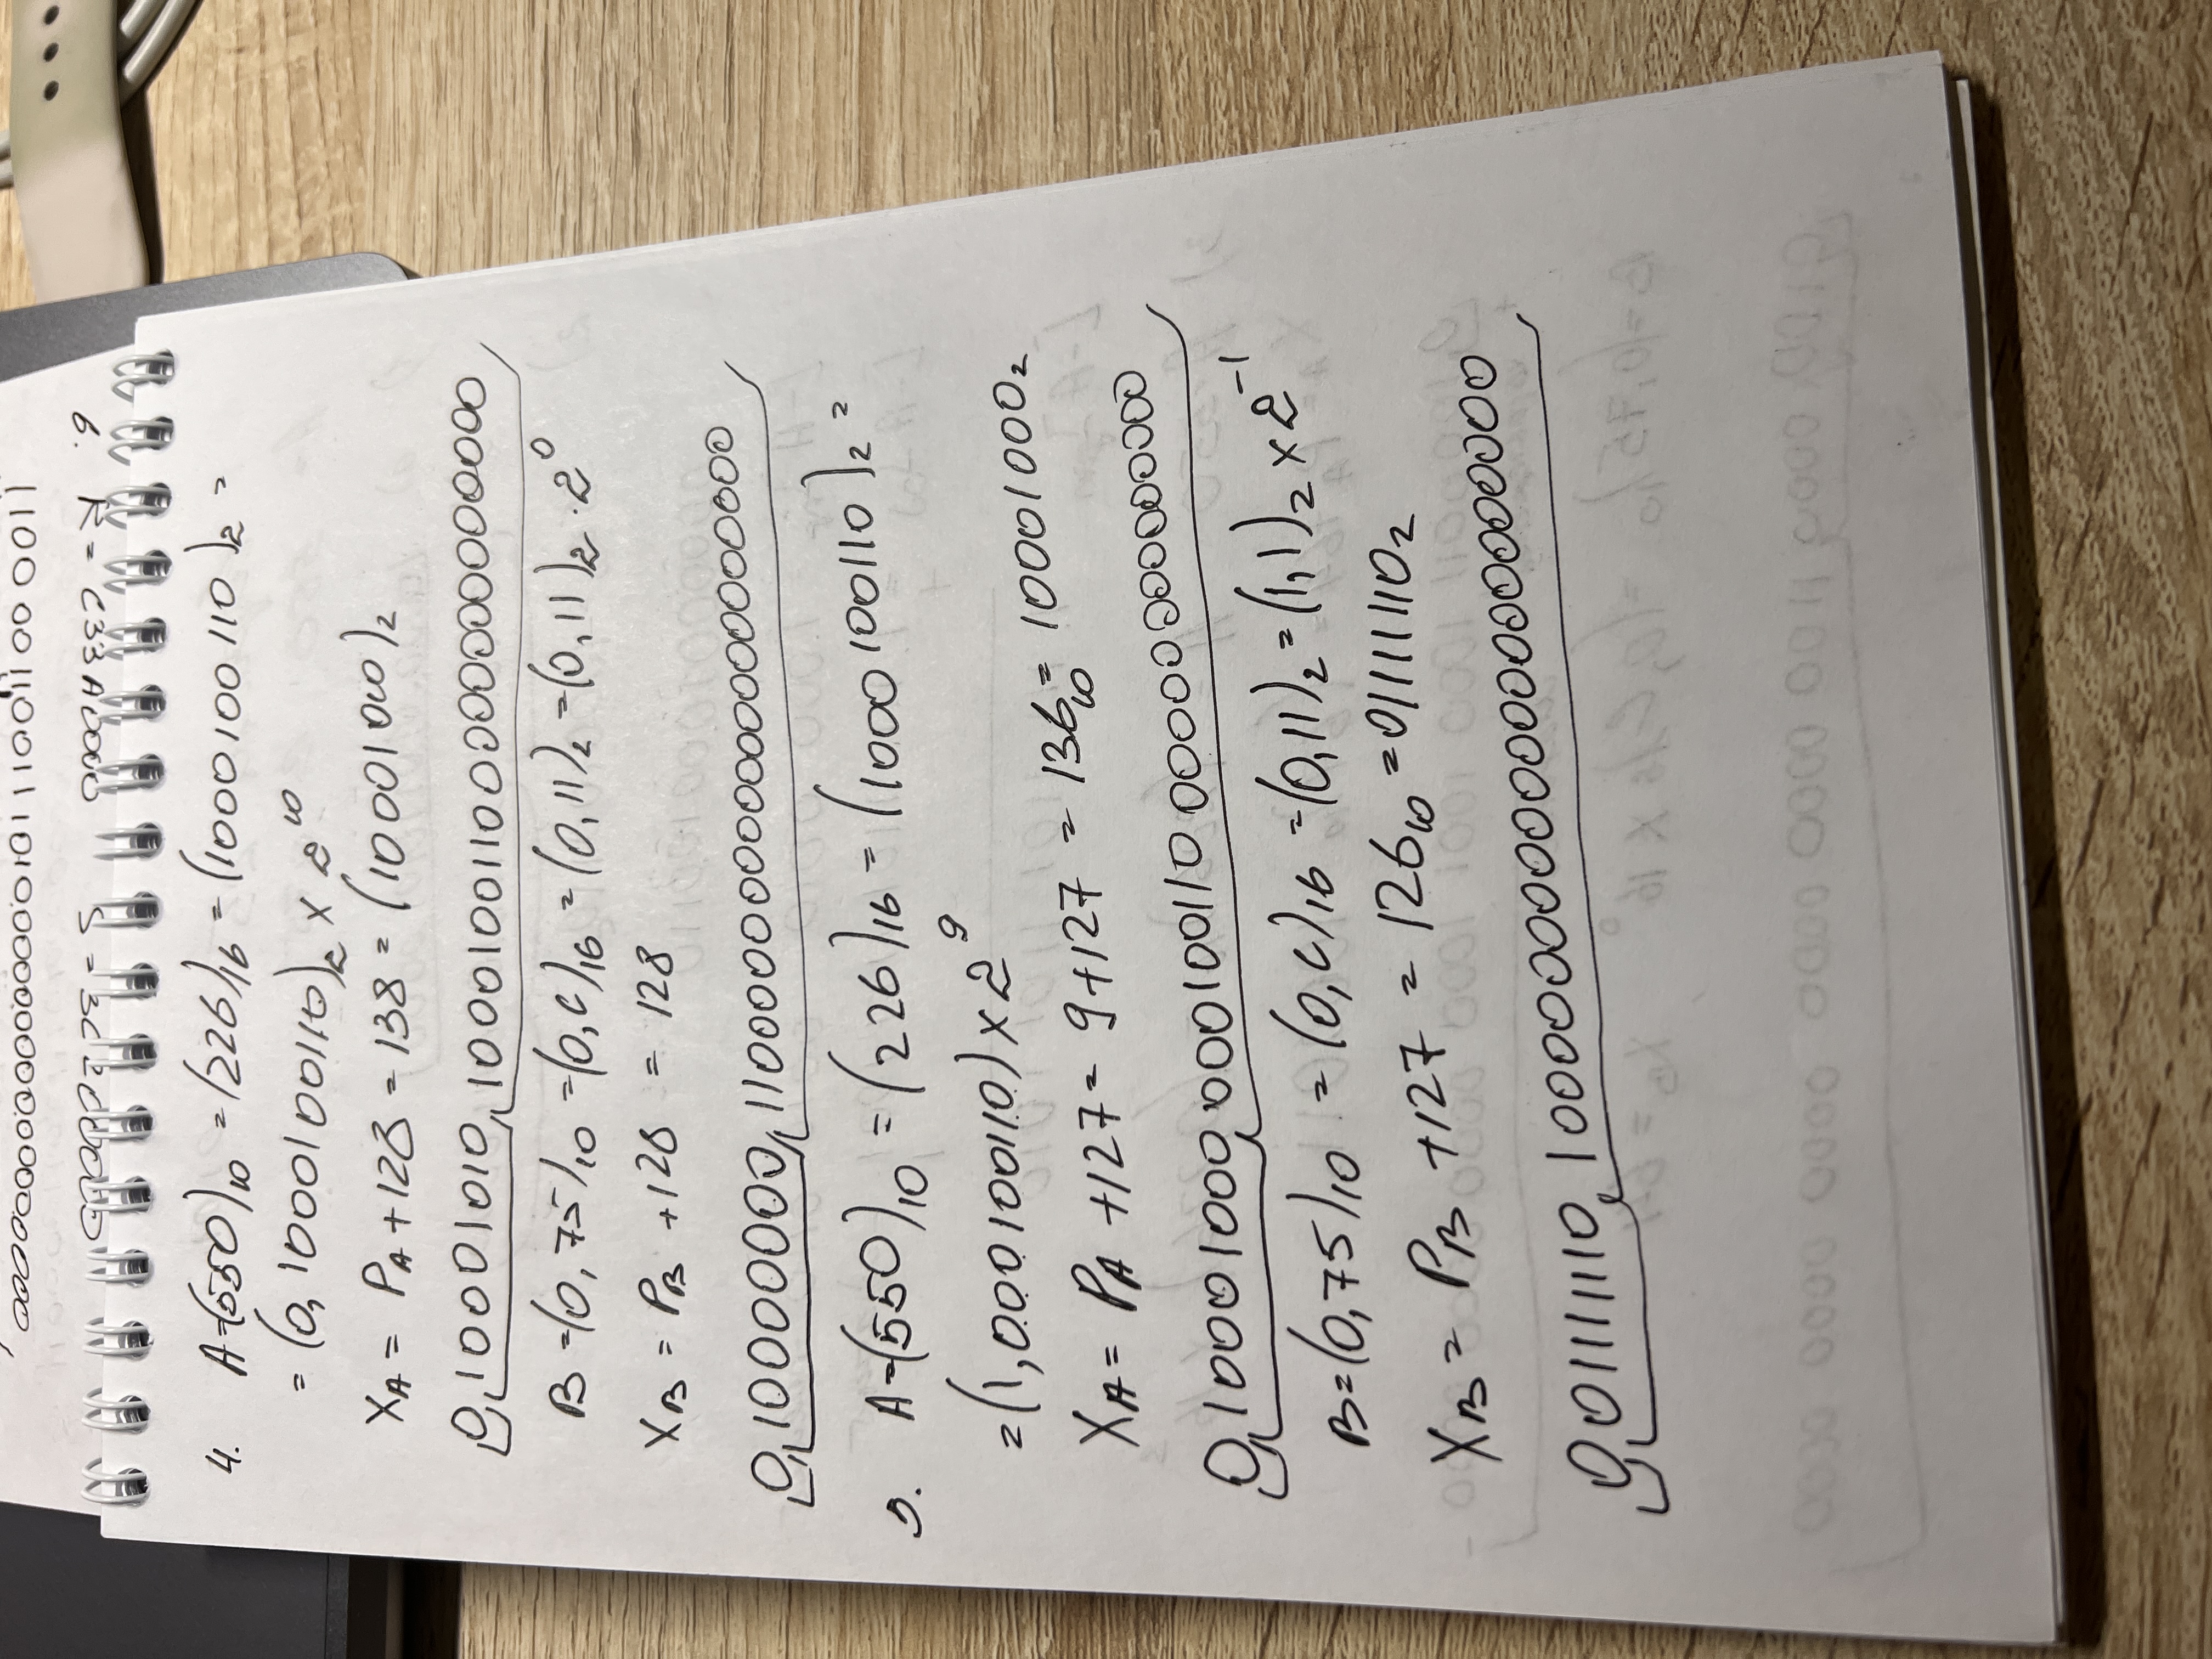 1100 00 11001110100000000000000000
6. R = C33A0000 S = 3EC20000
4. A=(550)10 = (226)16 = (1000100110)2 =
= (0,1000100110)2 x 2^10
XA = PA + 128 = 138 = (10001010)2
0 10001010 100010011000000000000000
B = (0,75)10 = (0,C)16 = (0,11)2 = (0,11)2 · 2^0
XB = PB + 128 = 128
0 10000000 11000000000000000000000
5. A=(550)10 = (226)16 = (1000100110)2 =
= (1,000100110) x 2^9
XA = PA + 127 = 9 + 127 = 136 10 = 10001000 2
0 10001000 00010011000000000000000
B = (0,75)10 = (0,C)16 = (0,11)2 = (1,1)2 x 2^-1
XB = PB + 127 = 126 10 = 01111110 2
0 01111110 10000000000000000000000